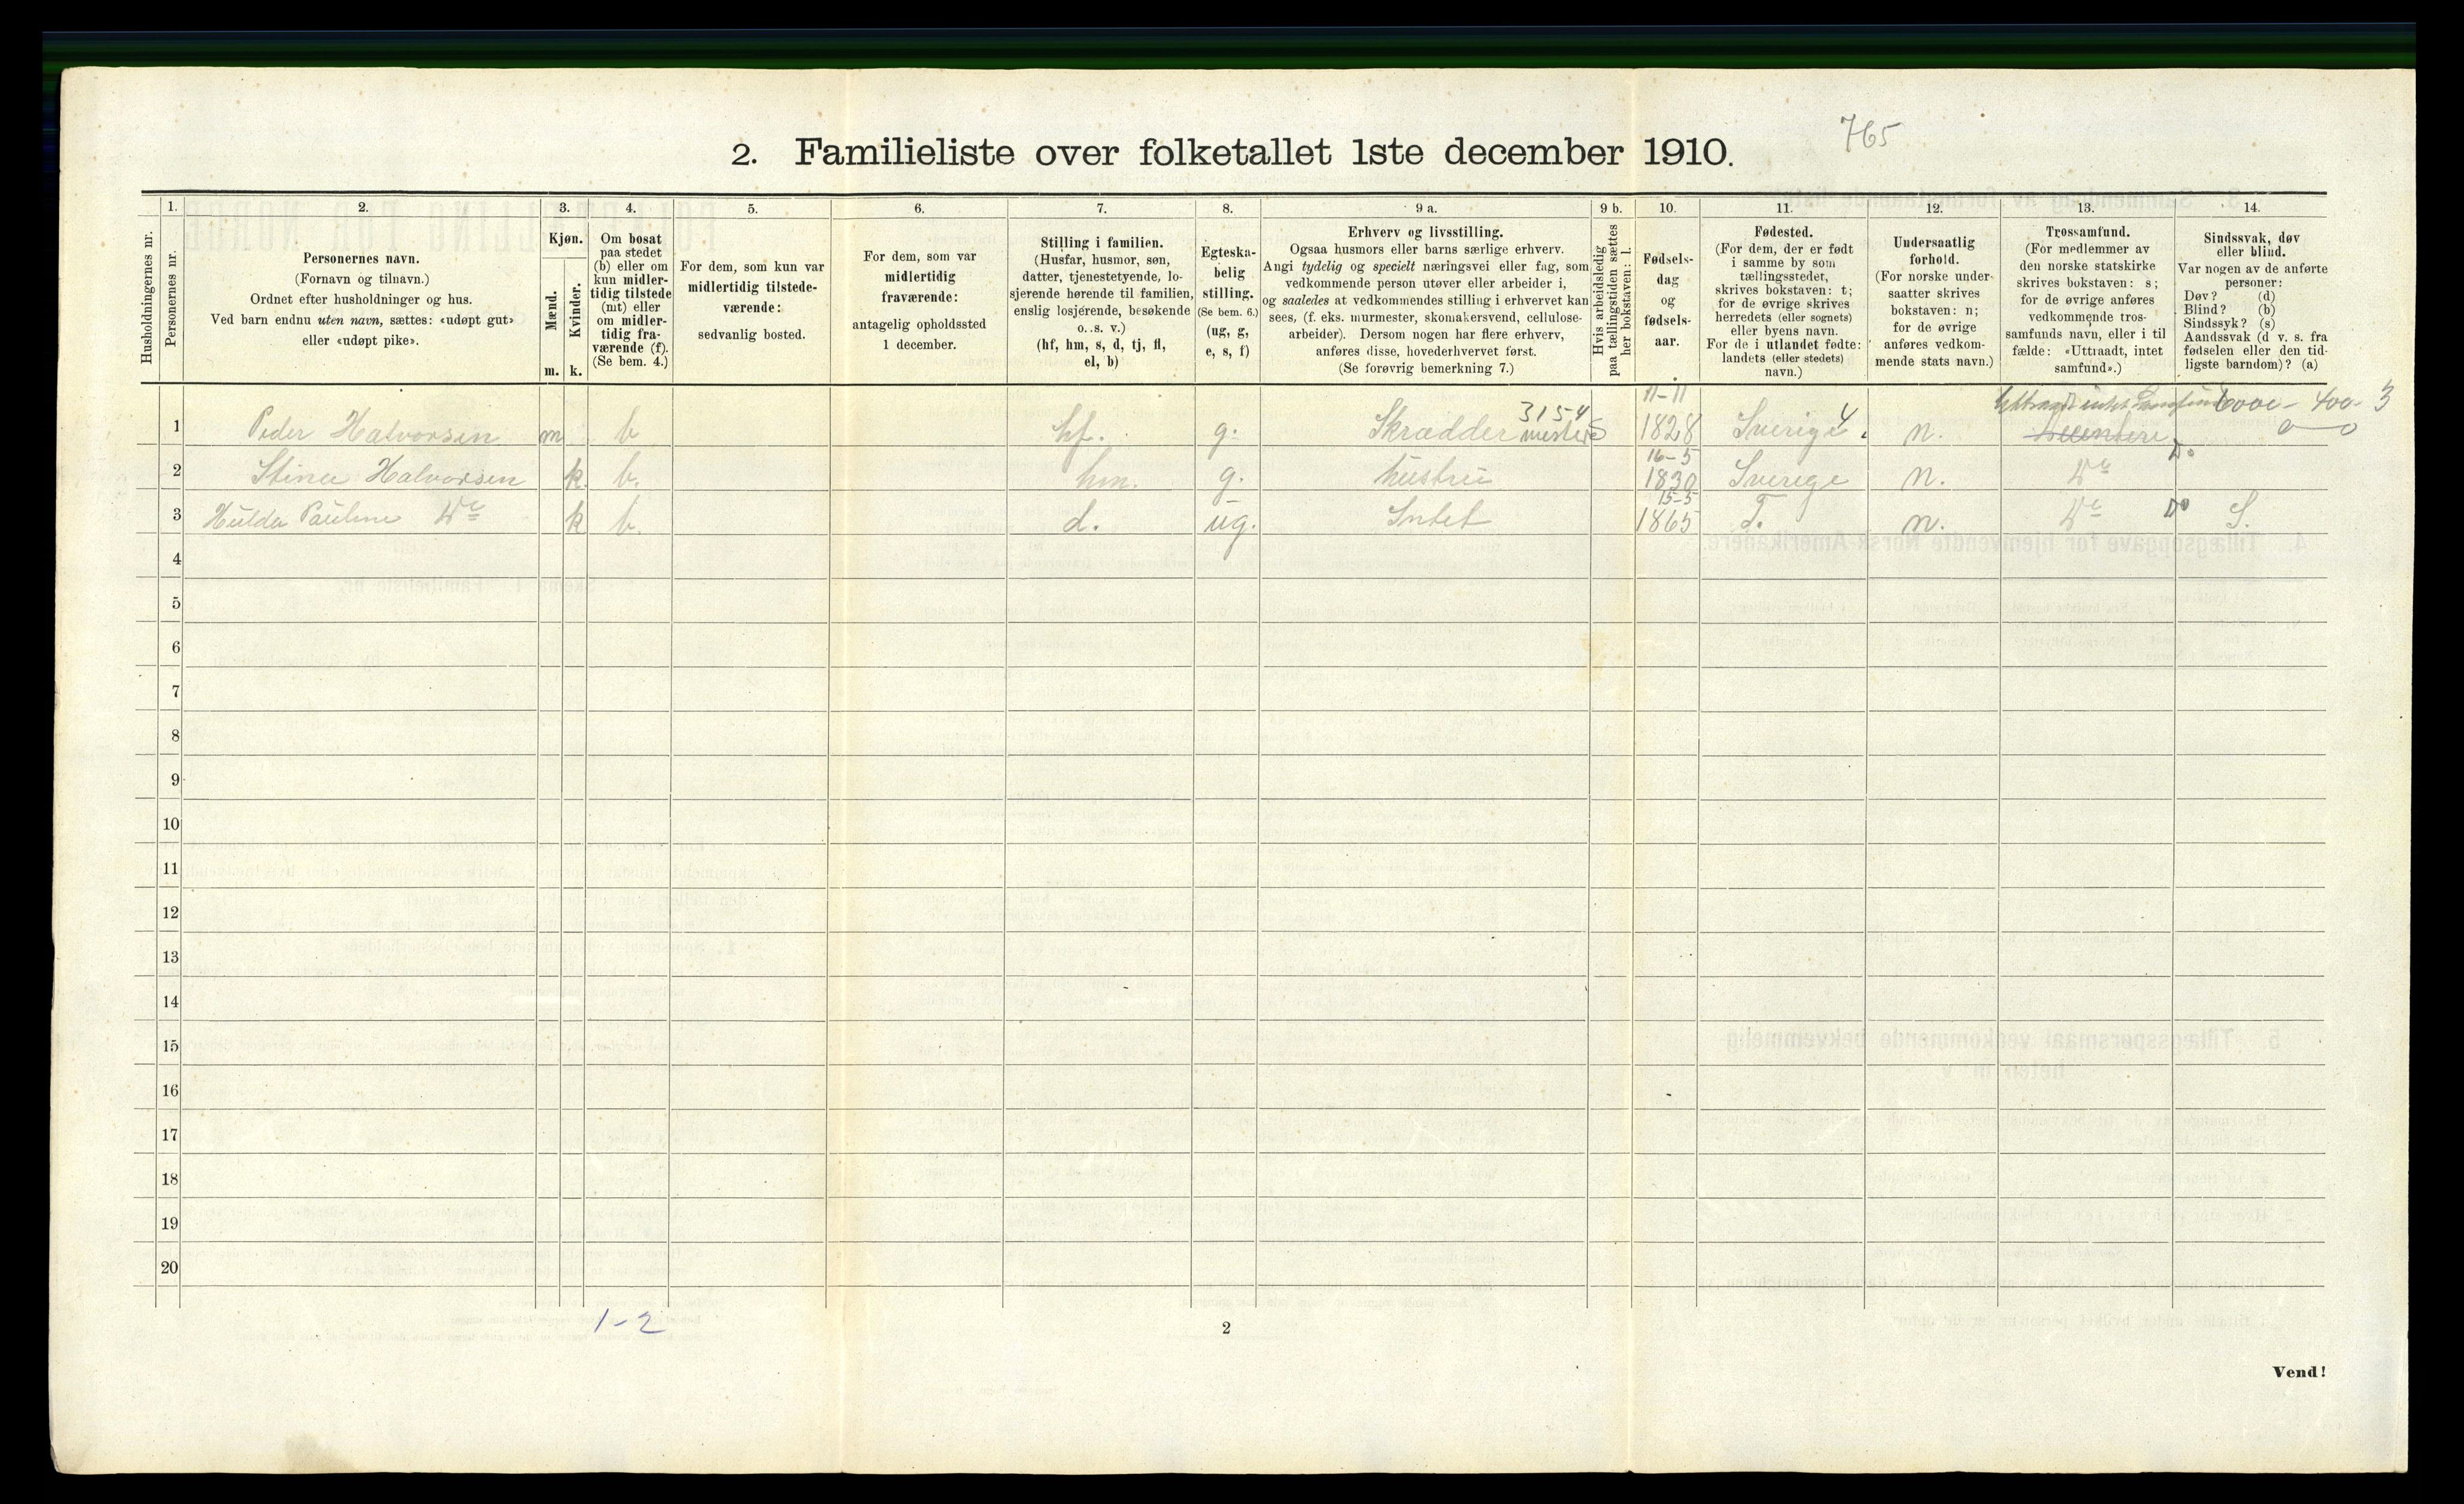 765
2. Familieliste over folketallet 1ste december 1910.
Husholdningernes nr.
1.
Personernes nr.
2.
Personernes navn.
(Fornavn og tilnavn.)
Ordnet efter husholdninger og hus.
Ved barn endnu uten navn, sættes: «udøpt gut»
eller «udøpt pike».
3.
Kjøn.
Mænd.
Kvinder.
m. k.
4.
Om bosat
paa stedet
(b) eller om
kun midler-
tidig tilstede
(mt) eller
om midler-
tidig fra-
værende (f).
(Se bem. 4.)
5.
For dem, som kun var
midlertidig tilstede-
værende:
sedvanlig bosted.
6.
For dem, som var
midlertidig
fraværende:
antagelig opholdssted
1 december.
7.
Stilling i familien.
(Husfar, husmor, søn,
datter, tjenestetyende, lo-
sjerende hørende til familien,
enslig losjerende, besøkende
o. s. v.)
(hf, hm, s, d, tj, fl,
el, b)
8.
Egteska-
belig
stilling.
(Se bem. 6.)
(ug, g,
e, s, f)
9 a.
Erhverv og livsstilling.
Ogsaa husmors eller barns særlige erhverv.
Angi tydelig og specielt næringsvei eller fag, som
vedkommende person utøver eller arbeider i,
og saaledes at vedkommendes stilling i erhvervet kan
sees, (f. eks. murmester, skomakersvend, cellulose-
arbeider). Dersom nogen har flere erhverv,
anføres disse, hovederhvervet først.
(Se forøvrig bemerkning 7.)
9 b.
Hvis arbeidsledig
paa tællingstiden sættes
her bokstaven: l.
10.
Fødsels-
dag
og
fødsels-
aar.
11.
Fødested.
(For dem, der er født
i samme by som
tællingsstedet,
skrives bokstaven: t;
for de øvrige skrives
herredets (eller sognets)
eller byens navn.
For de i utlandet fødte:
landets (eller stedets)
navn.)
12.
Undersaatlig
forhold.
(For norske under-
saatter skrives
bokstaven: n;
for de øvrige
anføres vedkom-
mende stats navn.)
13.
Trossamfund.
(For medlemmer av
den norske statskirke
skrives bokstaven: s;
for de øvrige anføres
vedkommende tros-
samfunds navn, eller i til
fælde: «Uttraadt, intet
samfund».)
14.
Sindssvak, døv
eller blind.
Var nogen av de anførte
personer:
Døv? (d)
Blind? (b)
Sindssyk? (s)
Aandssvak (d v. s. fra
fødselen eller den tid-
ligste barndom)? (a)
3154 11-11 4 Uttraadt intet Samfund 6000 - 400 - 3
1 Peder Halvorsen m b hf. g. Skrædder mester S 1828 Sverige. n.
16-5 Do
2 Stina Halvorsen k. b. hm. g. hustru 1830 Sverige n. Do
15-5
3 Hulda Pauline Do k b. d. ug. Intet 1865 T. n. Do Do S.
4
5
6
7
8
9
10
11
12
13
14
15
16
17
18
19
20
1-2
2
Vend!